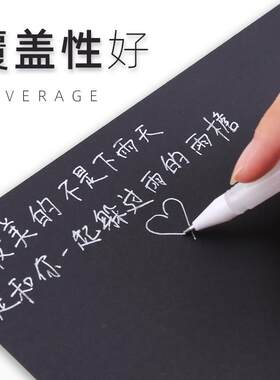 覆盖性好
OVERAGE
最美的不是下雨天
是和你一起躲过雨的雨檐